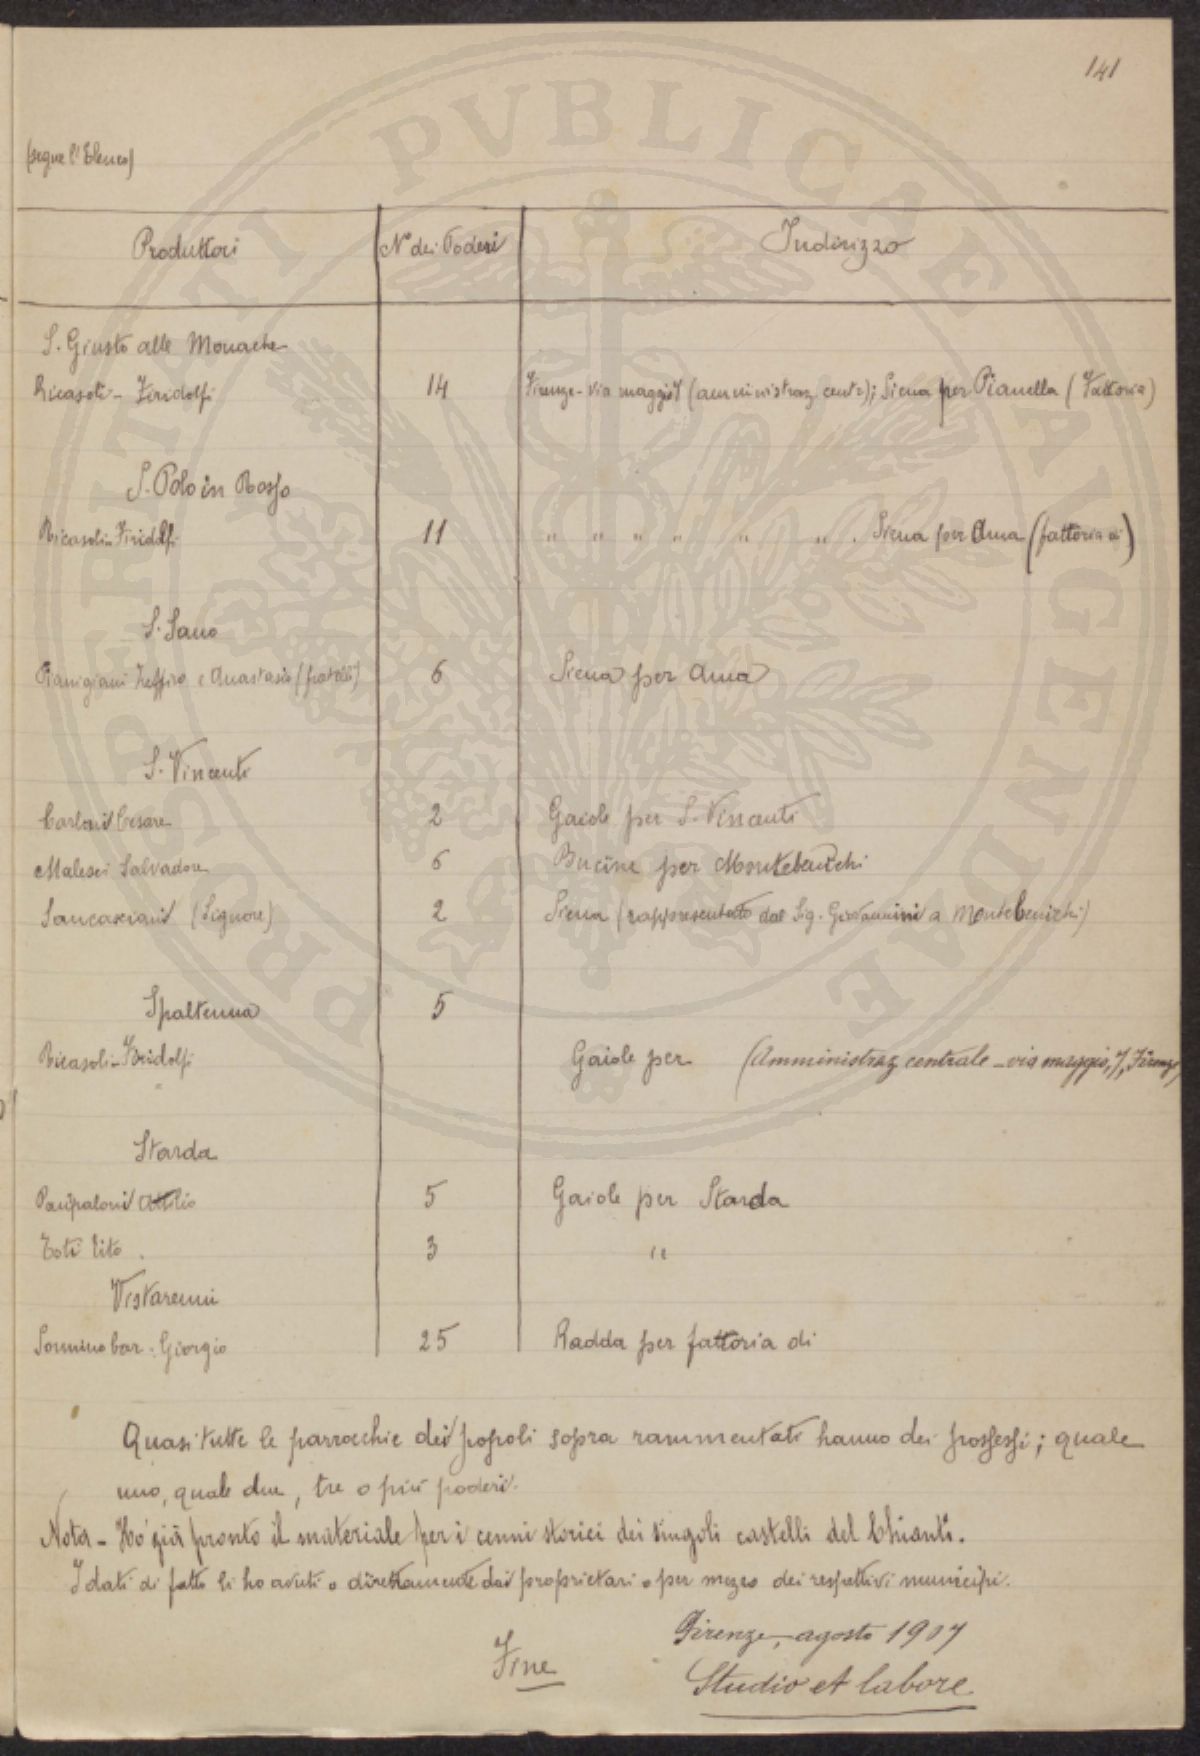 141
(segue l'Elenco)
Produttori | N° dei Poderi | Indirizzo
S. Giusto alle Monache
Ricasoli - Firidolfi | 14 | Firenze - via maggio 7 (amministraz. centr.); Siena per Pianella (Fattoria)
S. Polo in Rosso
Ricasoli - Firidolfi | 11 | " " " " " " . Siena per Ama (fattoria di)
S. Sano
Pianigiani Zeffiro e Anastasio (fratelli) | 6 | Siena per Ama
S. Vincenti
Carloni Cesare | 2 | Gaiole per S. Vincenti
Malesci Salvadore | 6 | Bucine per Montebenichi
Sancasciani (Signore) | 2 | Siena (rappresentate dal Sig. Giovannini a Montebenichi)
Spaltenna | 5
Ricasoli - Firidolfi | Gaiole per (Amministraz centrale - via maggio, 7, Firenze)
Starda
Pampaloni Attilio | 5 | Gaiole per Starda
Toti Tito . | 3 | "
Vistarenni
Sonnino bar. Giorgio | 25 | Radda per fattoria di
Quasi tutte le parrocchie dei popoli sopra rammentati hanno dei possessi; quale
uno, quale due, tre o più poderi.
Nota - Ho già pronto il materiale per i cenni storici dei singoli castelli del Chianti.
I dati di fatto li ho avuti o direttamente dai proprietari o per mezzo dei respettivi municipi.
Firenze, agosto 1907
Fine
Studio et labore
PROSPERITATI PVBLICAE AVGENDAE